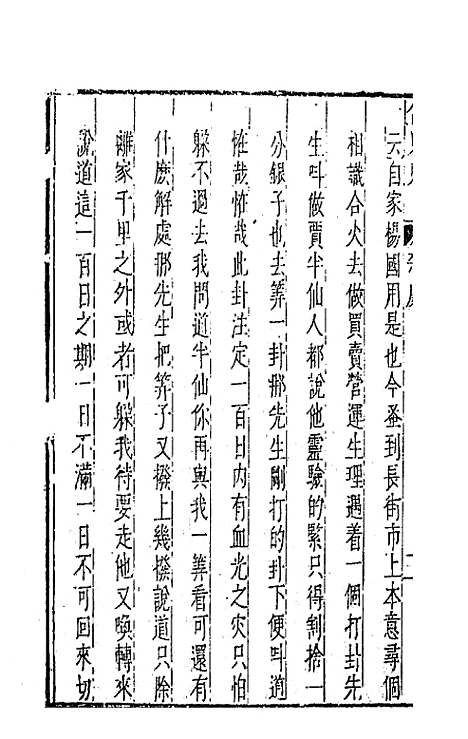 云自家楊國用是也今蚤到長街市上本意尋個
相識合火去做買賣營運生理遇着一個打卦先
生叫做賈半仙人都說他靈驗的緊只得割捨一
分銀子也去筭一卦那先生剛打的卦下便叫道
怪哉怪哉此卦法定一百日內有血光之災只怕
躲不過去我問道半仙你再與我一筭看可還有
什麽解處那先生把筭子又撥上幾撥說道只除
離家千里之外或者可躲我待要走他又喚轉來
說道這一百日之期一日不滿一日不可回來切